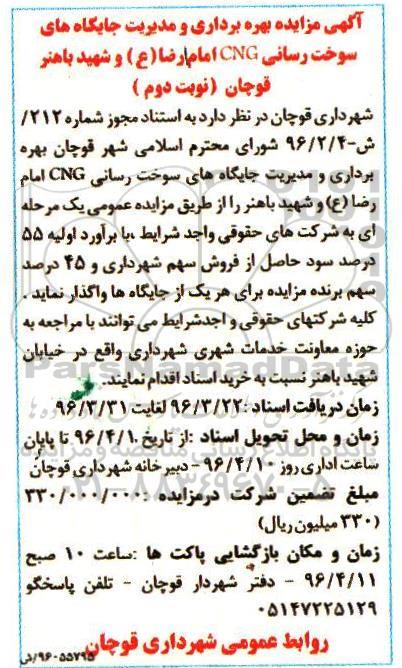 آگهی مزایده بهره برداری و مدیریت جایگاه های
سوخت رسانی CNG امام رضا (ع) و شهید باهنر
قوچان (نوبت دوم)
شهرداری قوچان در نظر دارد به استناد مجوز شماره ۲۱۲/
ش-۹۶/۲/۴ شورای محترم اسلامی شهر قوچان بهره
برداری و مدیریت جایگاه های سوخت رسانی CNG امام
رضا (ع) و شهید باهنر را از طریق مزایده عمومی یک مرحله
ای به شرکت های حقوقی واجد شرایط ،با برآورد اولیه ۵۵
درصد سود حاصل از فروش سهم شهرداری و ۴۵ درصد
سهم برنده مزایده برای هر یک از جایگاه ها واگذار نماید .
کلیه شرکتهای حقوقی و اجدشرایط می توانند با مراجعه به
حوزه معاونت خدمات شهری شهرداری واقع در خیابان
شهید باهنر نسبت به خرید اسناد اقدام نمایند.
زمان دریافت اسناد :۹۶/۳/۲۲ لغایت ۹۶/۳/۳۱
زمان و محل تحویل اسناد :از تاریخ ۹۶/۴/۱ تا پایان
ساعت اداری روز ۹۶/۴/۱۰ - دبیرخانه شهرداری قوچان
مبلغ تضمین شرکت درمزایده :۳۳۰/۰۰۰/۰۰۰
(۳۳۰ میلیون ریال)
زمان و مکان بازگشایی پاکت ها :ساعت ۱۰ صبح
۹۶/۴/۱۱ - دفتر شهردار قوچان - تلفن پاسخگو
۰۵۱۴۷۲۲۵۱۲۹
روابط عمومی شهرداری قوچان
۹۶۰۵۵۷۹۵/ش
ParsNamadData
پایگاه اطلاع رسانی مناقصه و مزایده
۰۲۱-۸۸۳۴۹۶۷۰-۵